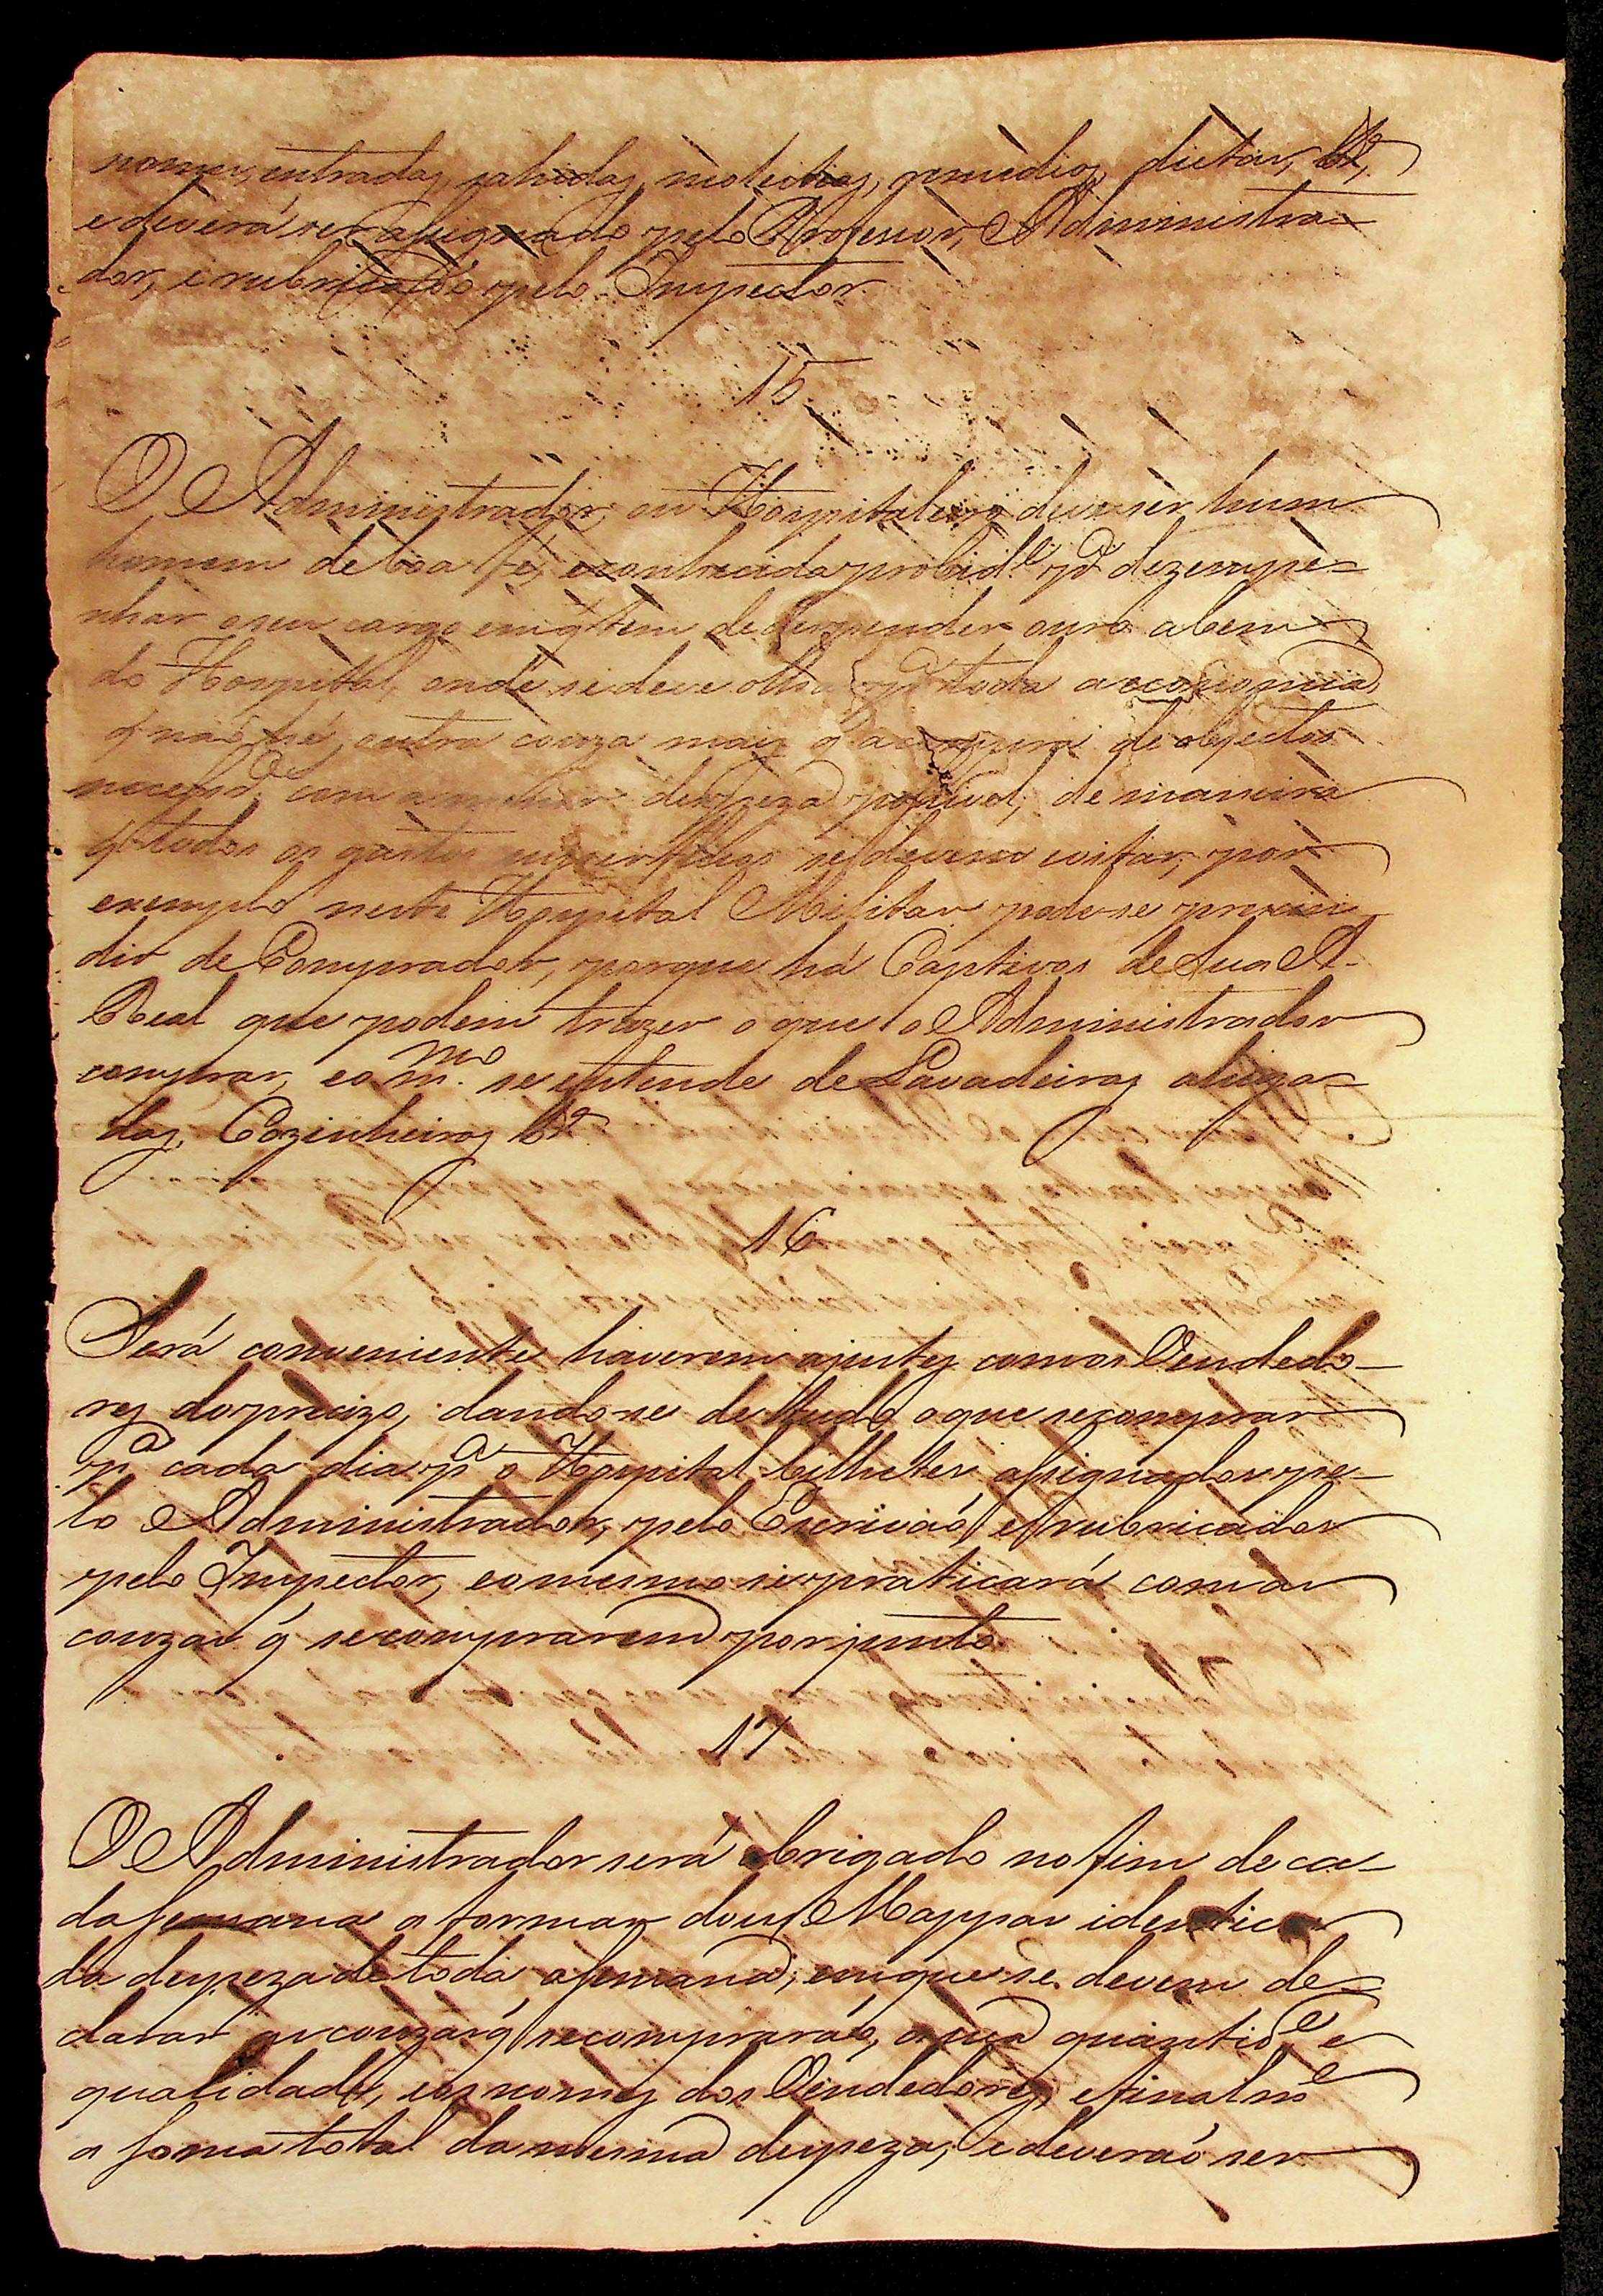 nomes, entradas, sahidas, molestias, remedios, dietas, &ª,
e deverá ser assignado pelo Professor, Administra-
dor, e rubricado pelo Inspector.
15
O Administrador, ou Hospitaleiro deve ser hum
homem de boa fé, e conhecida probid.e p.a dezempe-
nhar o seu cargo em q̃ tem de despender ouro a bem
do Hospital, onde se deve olhar p.a toda a economia,
q̃ não hé outra couza mais q̃ a compra de objectos
necessr.os com a menor despeza possivel, de maneira
q̃ todos os gastos superfluos se devem evitar, por
exemplo neste Hospital Militar pode-se prescin-
dir de Comprador, porque há Captivos de Sua A.
Real que podem trazer o que o Administrador
comprar, e o m.mo se entende de Lavadeiras aluga-
das, Cozinheiras &ª
16
Será conveniente haverem ajustes com os Vendedo-
res do precizo, dando-se de tudo o que se comprar
p.a cada dia p.a o Hospital bilhetes assignados pe-
lo Administrador, pelo Escrivão, e rubricados
pelo Inspector, e o mesmo se praticará com as
couzas q̃ se comprarem por junto.
17
O Administrador será obrigado no fim de ca-
da semana a formar dous Mappas identicos
da despeza de toda a semana, em que se devem de-
clarar as couzas q̃ se comprarão, a sua quantid.e e
qualidade, e os nomes dos Vendedores, e finalm.e
a soma total da mesma despeza, e deverão ser